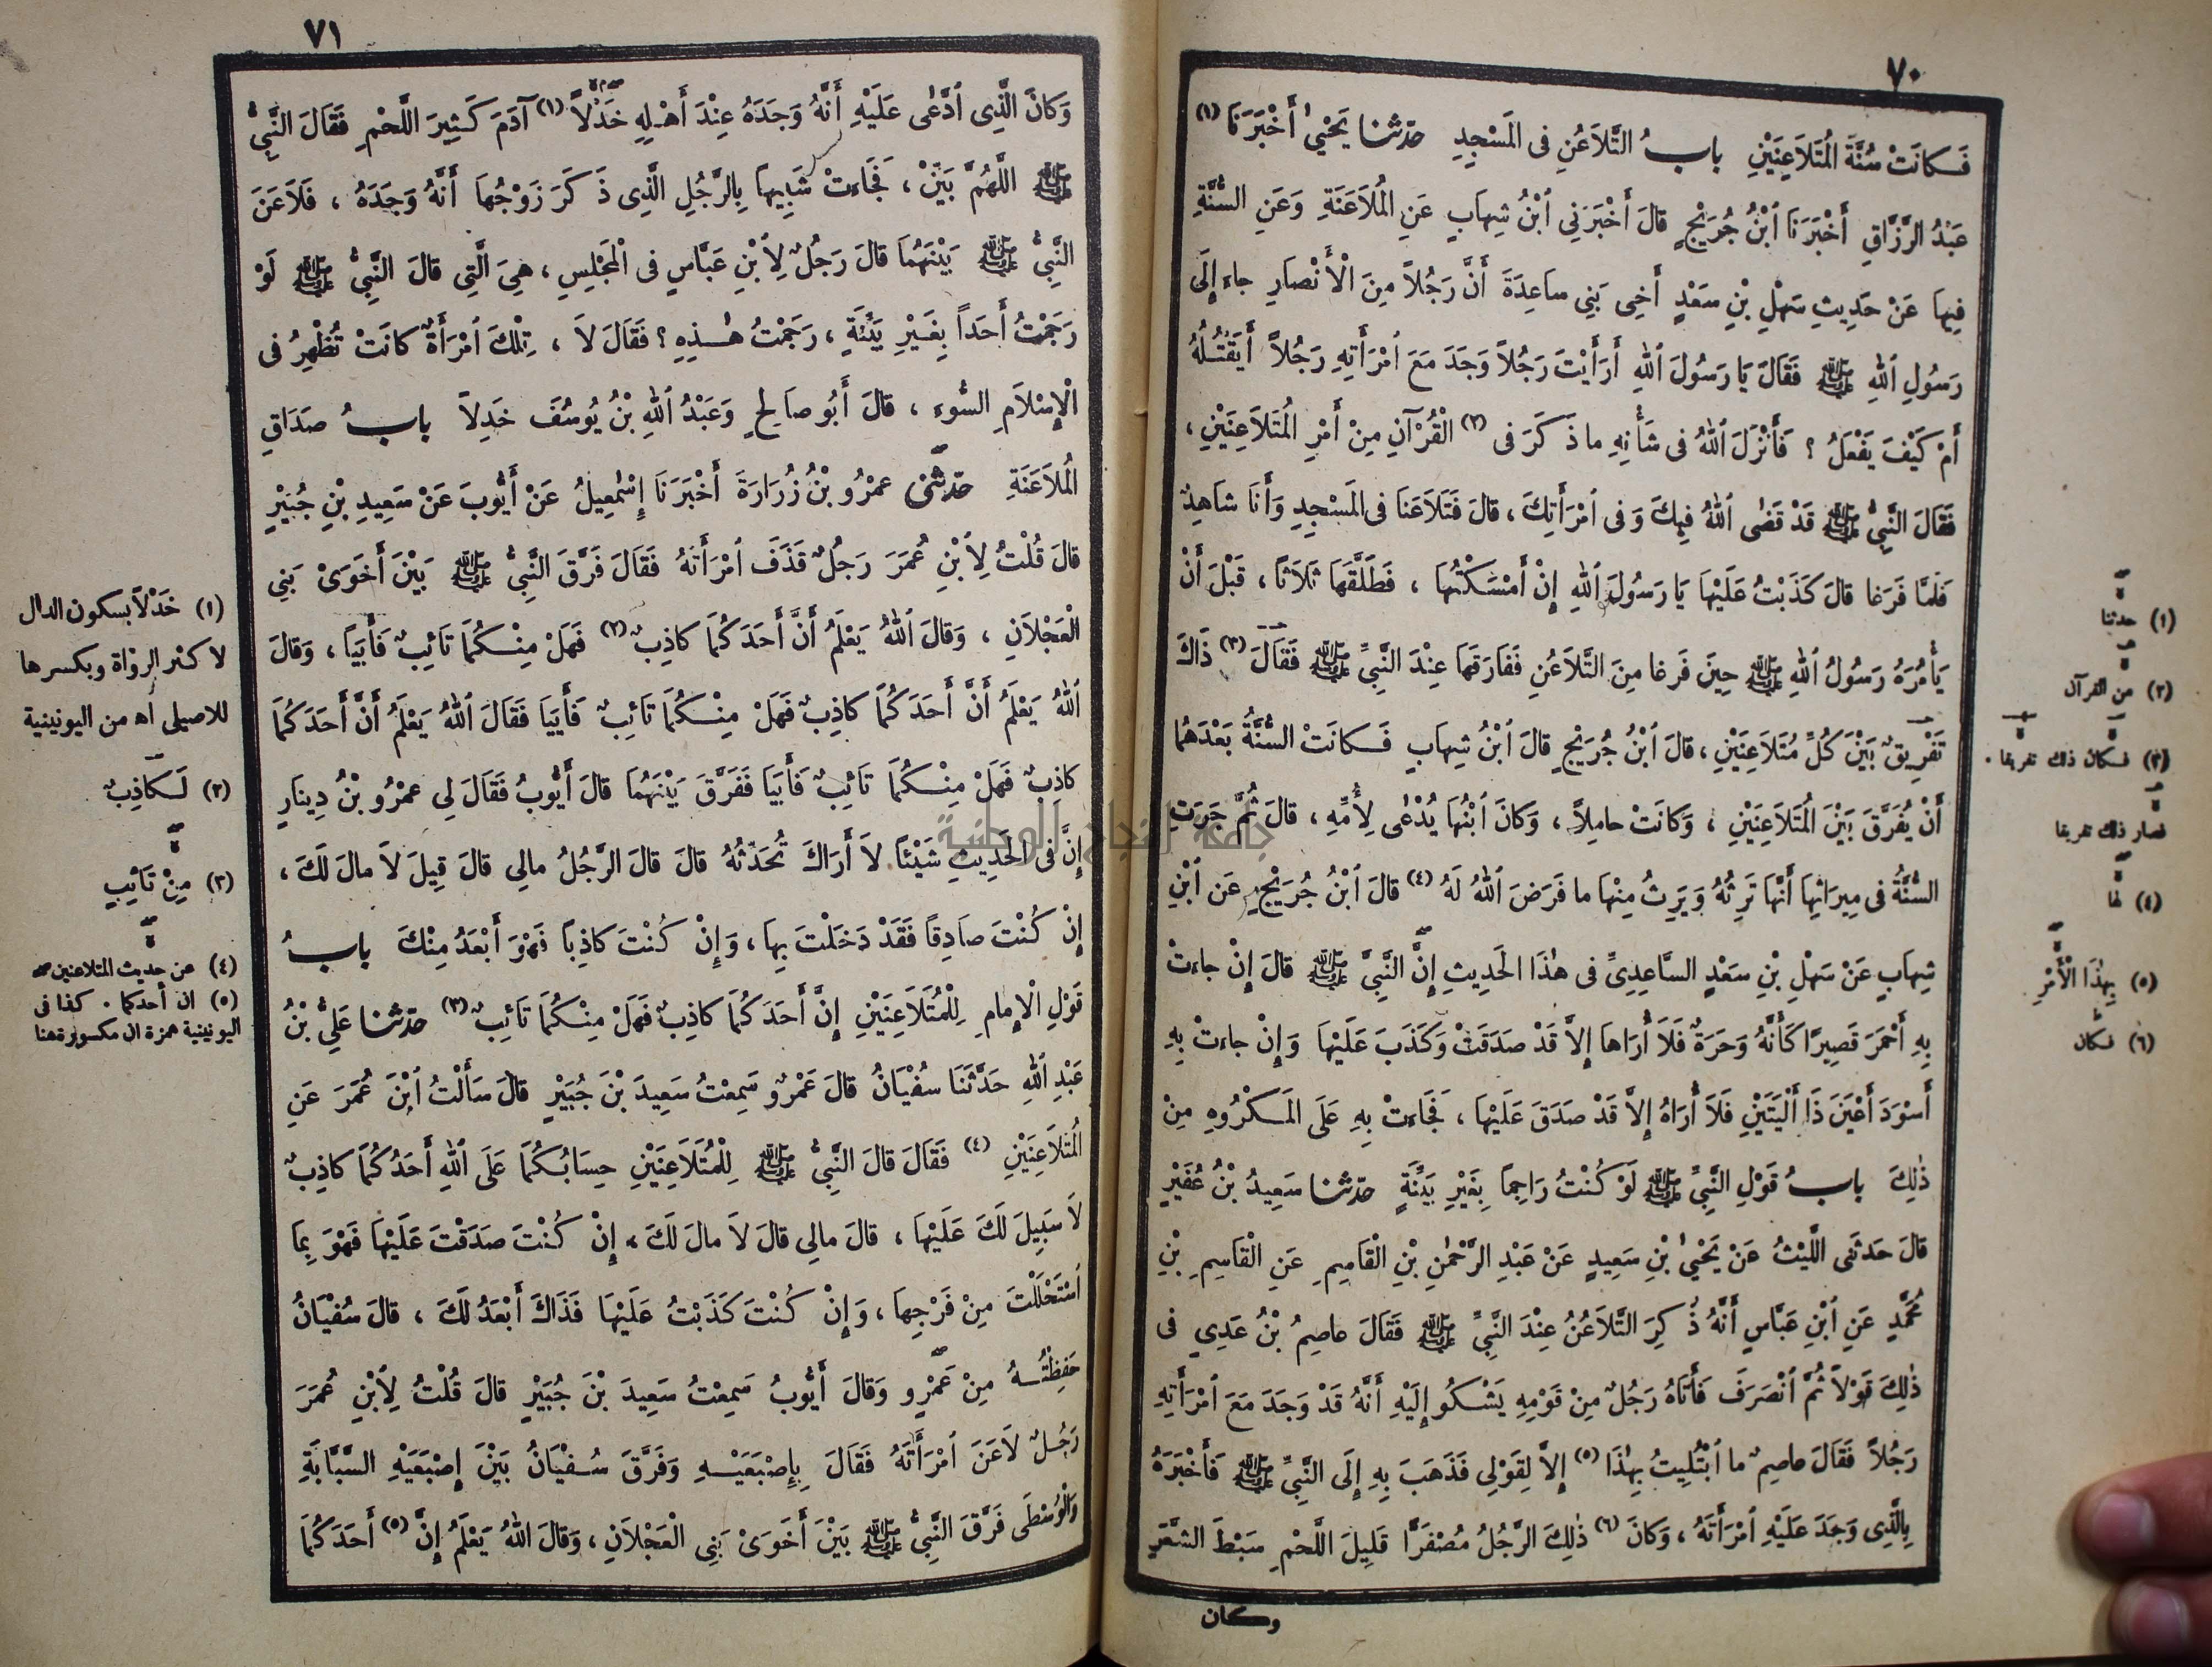 ٧٠
فَكَانَتْ سُنَّةَ الْمُتَلَاعِنَيْنِ بابُ التَّلَاعُنِ فِى الْمَسْجِدِ حدثنا يَحْيٰى أَخْبَرَنَا (١)
عَبْدُ الرَّزَّاقِ أَخْبَرَنَا ابْنُ جُرَيْجٍ قالَ أَخْبَرَنِى ابْنُ شِهَابٍ عَنِ الْمُلَاعَنَةِ وَعَنِ السُّنَّةِ
فِيهَا عَنْ حَدِيثِ سَهْلِ بْنِ سَعْدٍ أَخِى بَنِى ساعِدَةَ أَنَّ رَجُلاً مِنَ الْأَنْصَارِ جاءَ إِلَى
رَسُولِ اللهِ ﷺ فَقَالَ يَا رَسُولَ اللهِ أَرَأَيْتَ رَجُلاً وَجَدَ مَعَ امْرَأَتِهِ رَجُلاً أَيَقْتُلُهُ
أَمْ كَيْفَ يَفْعَلُ ؟ فَأَنْزَلَ اللهُ فى شَأْنِهِ ما ذَكَرَ فى (٢) الْقُرْآنِ مِنْ أَمْرِ الْمُتَلَاعِنَيْنِ ،
فَقَالَ النَّبِىُّ ﷺ قَدْ قَضٰى اللهُ فِيكَ وَفى امْرَأَتِكَ ، قالَ فَتَلَاعَنَا فى الْمَسْجِدِ وَأَنَا شاهِدٌ
فَلَمَّا فَرَغَا قالَ كَذَبْتُ عَلَيْهَا يَا رَسُولَ اللهِ إِنْ أَمْسَكْتُهَا ، فَطَلَّقَهَا ثَلَاثًا ، قَبْلَ أَنْ
يَأْمُرَهُ رَسُولُ اللهِ ﷺ حِينَ فَرَغا مِنَ التَّلَاعُنِ فَفَارَقَهَا عِنْدَ النَّبِىِّ ﷺ فَقَالَ (٣) ذَاكَ
تَفْرِيقٌ بَيْنَ كُلِّ مُتَلَاعِنَيْنِ ، قالَ ابْنُ جُرَيْجٍ قالَ ابْنُ شِهَابٍ فَكَانَتْ السُّنَّةُ بَعْدَهُمَا
أَنْ يُفَرَّقَ بَيْنَ الْمُتَلَاعِنَيْنِ ، وَكَانَتْ حامِلاً ، وَكانَ ابْنُهَا يُدْعٰى لِأُمِّهِ ، قالَ ثُمَّ جَرَتِ
السُّنَّةُ فى مِيرَاثِهَا أَنَّهَا تَرِثُهُ وَيَرِثُ مِنْهَا ما فَرَضَ اللهُ لَهُ (٤) قالَ ابْنُ جُرَيْجٍ عَنِ ابْنِ
شِهَابٍ عَنْ سَهْلِ بْنِ سَعْدٍ السَّاعِدِىِّ فى هٰذَا الْحَدِيثِ إِنَّ النَّبِىَّ ﷺ قالَ إِنْ جاءَتْ
بِهِ أَحْمَرَ قَصِيرًا كَأَنَّهُ وَحَرَةٌ فَلَا أُرَاهَا إِلاَّ قَدْ صَدَقَتْ وَكَذَبَ عَلَيْهَا وَإِنْ جاءَتْ بِهِ
أَسْوَدَ أَعْيَنَ ذَا أَلْيَتَيْنِ فَلَا أُرَاهُ إِلاَّ قَدْ صَدَقَ عَلَيْهَا ، فَجَاءَتْ بِهِ عَلَى الْمَكْرُوهِ مِنْ
ذٰلِكَ بابُ قَوْلِ النَّبِىِّ ﷺ لَوْ كُنْتُ رَاجِمًا بِغَيْرِ بَيِّنَةٍ حدثنا سَعِيدُ بْنُ عُفَيْرٍ
قالَ حَدَّثَنِى اللَّيْثُ عَنْ يَحْيٰى بْنِ سَعِيدٍ عَنْ عَبْدِ الرَّحْمٰنِ بْنِ الْقَاسِمِ عَنِ الْقَاسِمِ بْنِ
مُحَمَّدٍ عَنِ ابْنِ عَبَّاسٍ أَنَّهُ ذُكِرَ التَّلَاعُنُ عِنْدَ النَّبِىِّ ﷺ فَقَالَ عاصِمُ بْنُ عَدِىٍّ فى
ذٰلِكَ قَوْلاً ثُمَّ انْصَرَفَ فَأَتَاهُ رَجُلٌ مِنْ قَوْمِهِ يَشْكُو إِلَيْهِ أَنَّهُ قَدْ وَجَدَ مَعَ امْرَأَتِهِ
رَجُلاً فَقَالَ عاصِمٌ ما ابْتُلِيتُ بِهٰذَا (٥) إِلاَّ لِقَوْلِى فَذَهَبَ بِهِ إِلَى النَّبِىِّ ﷺ فَأَخْبَرَهُ
بِالَّذِى وَجَدَ عَلَيْهِ امْرَأَتَهُ ، وَكانَ (٦) ذٰلِكَ الرَّجُلُ مُصْفَرًّا قَلِيلَ اللَّحْمِ سَبْطَ الشَّعَرِ
وكان
(١) حدثنا
(٢) من القرآن
(٣) فكان ذلك تفريقا .
فصار ذلك تفريقا
(٤) لها
(٥) بِهٰذَا الْأَمْرِ
(٦) فكان
٧١
وَكانَ الَّذِى ادَّعٰى عَلَيْهِ أَنَّهُ وَجَدَهُ عِنْدَ أَهْلِهِ خَدْلاً (١) آدَمَ كَثِيرَ اللَّحْمِ فَقَالَ النَّبِىُّ
ﷺ اللَّهُمَّ بَيِّنْ ، فَجَاءَتْ شَبِيهًا بِالرَّجُلِ الَّذِى ذَكَرَ زَوْجُهَا أَنَّهُ وَجَدَهُ ، فَلَاعَنَ
النَّبِىُّ ﷺ بَيْنَهُمَا قالَ رَجُلٌ لِابْنِ عَبَّاسٍ فى الْمَجْلِسِ ، هِىَ الَّتِى قالَ النَّبِىُّ ﷺ لَوْ
رَجَمْتُ أَحَدًا بِغَيْرِ بَيِّنَةٍ ، رَجَمْتُ هٰذِهِ ؟ فَقَالَ لاَ ، تِلْكَ امْرَأَةٌ كانَتْ تُظْهِرُ فى
الْإِسْلَامِ السُّوءَ ، قالَ أَبُو صالِحٍ وَعَبْدُ اللهِ بْنُ يُوسُفَ خَدِلاً بابُ صَدَاقِ
الْمُلَاعَنَةِ حدثنى عَمْرُو بْنُ زُرَارَةَ أَخْبَرَنَا إِسْمٰعِيلُ عَنْ أَيُّوبَ عَنْ سَعِيدِ بْنِ جُبَيْرٍ
قالَ قُلْتُ لِابْنِ عُمَرَ رَجُلٌ قَذَفَ امْرَأَتَهُ فَقَالَ فَرَّقَ النَّبِىُّ ﷺ بَيْنَ أَخَوَىْ بَنِى
الْعَجْلَانِ ، وَقالَ اللهُ يَعْلَمُ أَنَّ أَحَدَكُمَا كاذِبٌ (٢) فَهَلْ مِنْكُمَا تَائِبٌ فَأَبَيَا ، وَقالَ
اللهُ يَعْلَمُ أَنَّ أَحَدَكُمَا كاذِبٌ فَهَلْ مِنْكُمَا تَائِبٌ فَأَبَيَا فَقَالَ اللهُ يَعْلَمُ أَنَّ أَحَدَكُمَا
كاذِبٌ فَهَلْ مِنْكُمَا تَائِبٌ فَأَبَيَا فَفَرَّقَ بَيْنَهُمَا قالَ أَيُّوبُ فَقَالَ لِى عَمْرُو بْنُ دِينَارٍ
إِنَّ فى الْحَدِيثِ شَيْئًا لاَ أَرَاكَ تُحَدِّثُهُ قالَ قالَ الرَّجُلُ مالِى قالَ قِيلَ لاَ مالَ لَكَ ،
إِنْ كُنْتَ صادِقًا فَقَدْ دَخَلْتَ بِهَا ، وَإِنْ كُنْتَ كاذِبًا فَهْوَ أَبْعَدُ مِنْكَ بابُ
قَوْلِ الْإِمامِ لِلْمُتَلَاعِنَيْنِ إِنَّ أَحَدَكُمَا كاذِبٌ فَهَلْ مِنْكُمَا تَائِبٌ (٣) حدثنا عَلِىُّ بْنُ
عَبْدِ اللهِ حَدَّثَنَا سُفْيَانُ قالَ عَمْرٌو سَمِعْتُ سَعِيدَ بْنَ جُبَيْرٍ قالَ سَأَلْتُ ابْنَ عُمَرَ عَنِ
الْمُتَلَاعِنَيْنِ (٤) فَقَالَ قالَ النَّبِىُّ ﷺ لِلْمُتَلَاعِنَيْنِ حِسَابُكُمَا عَلَى اللهِ أَحَدُكُمَا كاذِبٌ
لاَ سَبِيلَ لَكَ عَلَيْهَا ، قالَ مالِى قالَ لاَ مالَ لَكَ ، إِنْ كُنْتَ صَدَقْتَ عَلَيْهَا فَهْوَ بِمَا
اسْتَحْلَلْتَ مِنْ فَرْجِهَا ، وَإِنْ كُنْتَ كَذَبْتَ عَلَيْهَا فَذَاكَ أَبْعَدُ لَكَ ، قالَ سُفْيَانُ
حَفِظْتُهُ مِنْ عَمْرٍو وَقالَ أَيُّوبُ سَمِعْتُ سَعِيدَ بْنَ جُبَيْرٍ قالَ قُلْتُ لِابْنِ عُمَرَ
رَجُلٌ لَاعَنَ امْرَأَتَهُ فَقَالَ بِإِصْبَعَيْهِ وَفَرَّقَ سُفْيَانُ بَيْنَ إِصْبَعَيْهِ السَّبَّابَةِ
وَالْوُسْطَى فَرَّقَ النَّبِىُّ ﷺ بَيْنَ أَخَوَىْ بَنِى الْعَجْلَانِ ، وَقالَ اللهُ يَعْلَمُ إِنَّ (٥) أَحَدَكُمَا
(١) خَدْلاً بسكون الدال
لاكثر الرواة وبكسرها
للاصيلى اه من اليونينية
(٢) لَكاذِبٌ
(٣) مِنْ تَائِبٍ
(٤) عن حديث المتلاعنين
(٥) ان أحدكما . كذا فى
اليونينية همزة ان مكسورة هنا
جامعة النجاح الوطنية